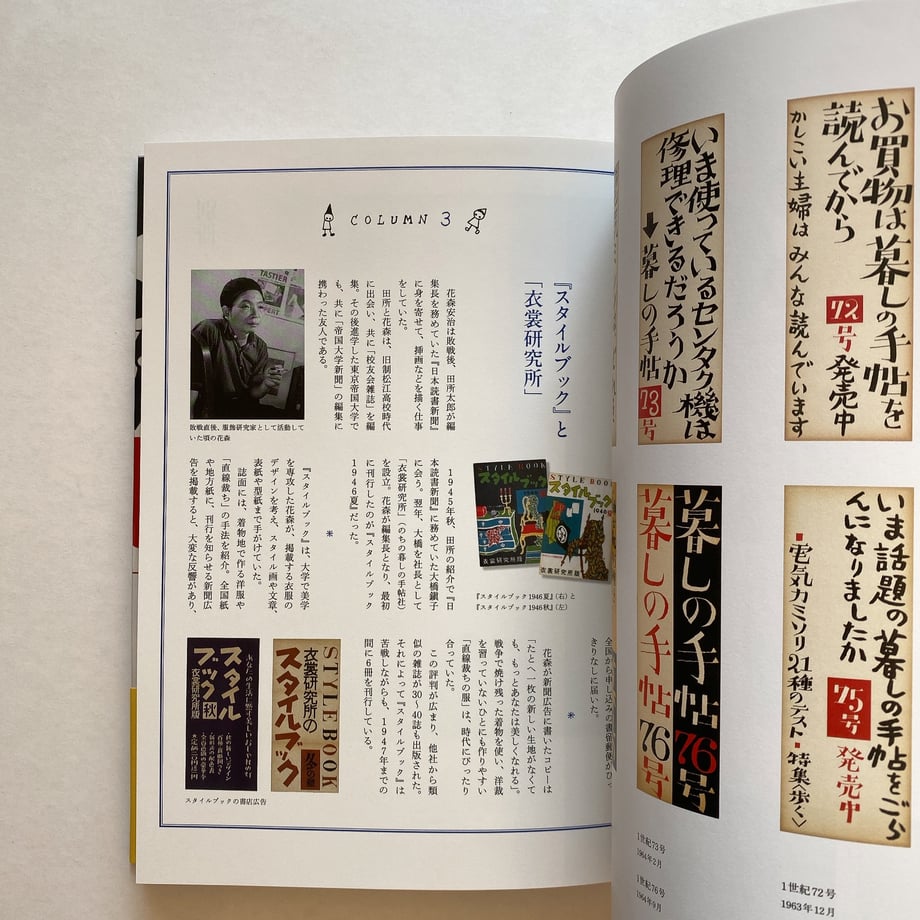 COLUMN 3
『スタイルブック』と
「衣裳研究所」
花森安治は敗戦後、田所太郎が編
集長を務めていた『日本読書新聞』
に身を寄せて、挿画などを描く仕事
をしていた。
田所と花森は、旧制松江高校時代
に出会い、共に「校友会雑誌」を編
集。その後進学した東京帝国大学で
も、共に「帝国大学新聞」の編集に
携わった友人である。
TASTIER
敗戦直後、服飾研究家として活動して
いた頃の花森
1945年秋、田所の紹介で『日
本読書新聞』に務めていた大橋鎭子
に会う。翌年、大橋を社長として
「衣裳研究所」(のちの暮しの手帖社)
を設立。花森が編集長となり、最初
に刊行したのが『スタイルブック
1946夏』だった。
*
『スタイルブック』は、大学で美学
を専攻した花森が、掲載する衣服の
デザインを考え、スタイル画や文章、
表紙や型紙まで手がけていた。
誌面には、着物地で作る洋服や
「直線裁ち」の手法を紹介。全国紙
や地方紙に、刊行を知らせる新聞広
告を掲載すると、大変な反響があり、
STYLE BOOK
スタイルブック
衣裳研究所版
STYLE BOOK
スタイルブック
1946
衣裳研究所版
『スタイルブック1946夏』(右)と
『スタイルブック1946秋』(左)
全国から申し込みの書留郵便がひっ
きりなしに届いた。
*
花森が新聞広告に書いたコピーは
「たとへ一枚の新しい生地がなくて
も、もっとあなたは美しくなれる」。
戦争で焼け残った着物を使い、洋裁
を習っていないひとにも作りやすい
「直線裁ちの服」は、時代にぴったり
合っていた。
この評判が広まり、他社から類
似の雑誌が30〜40誌も出版された。
それによって『スタイルブック』は
苦戦しながらも、1947年までの
間に6冊を刊行している。
STYLE BOOK
衣裳研究所の
スタイルブック
スタイル
ブック
秋
衣裳研究所版
スタイルブックの書店広告
お買物は暮しの手帖を
読んでから
72号 発売中
かしこい主婦は みんな読んでいます
いま使っているセンタク機は
修理できるだろうか
↓暮しの手帖 73号
いま話題の暮しの手帖をごら
んになりましたか
75号 発売中
電気カミソリ21種のテスト・特集〈歩く〉
暮しの手帖76号
暮しの手帖76号
1世紀73号
1964年2月
1世紀76号
1964年9月
1世紀72号
1963年12月